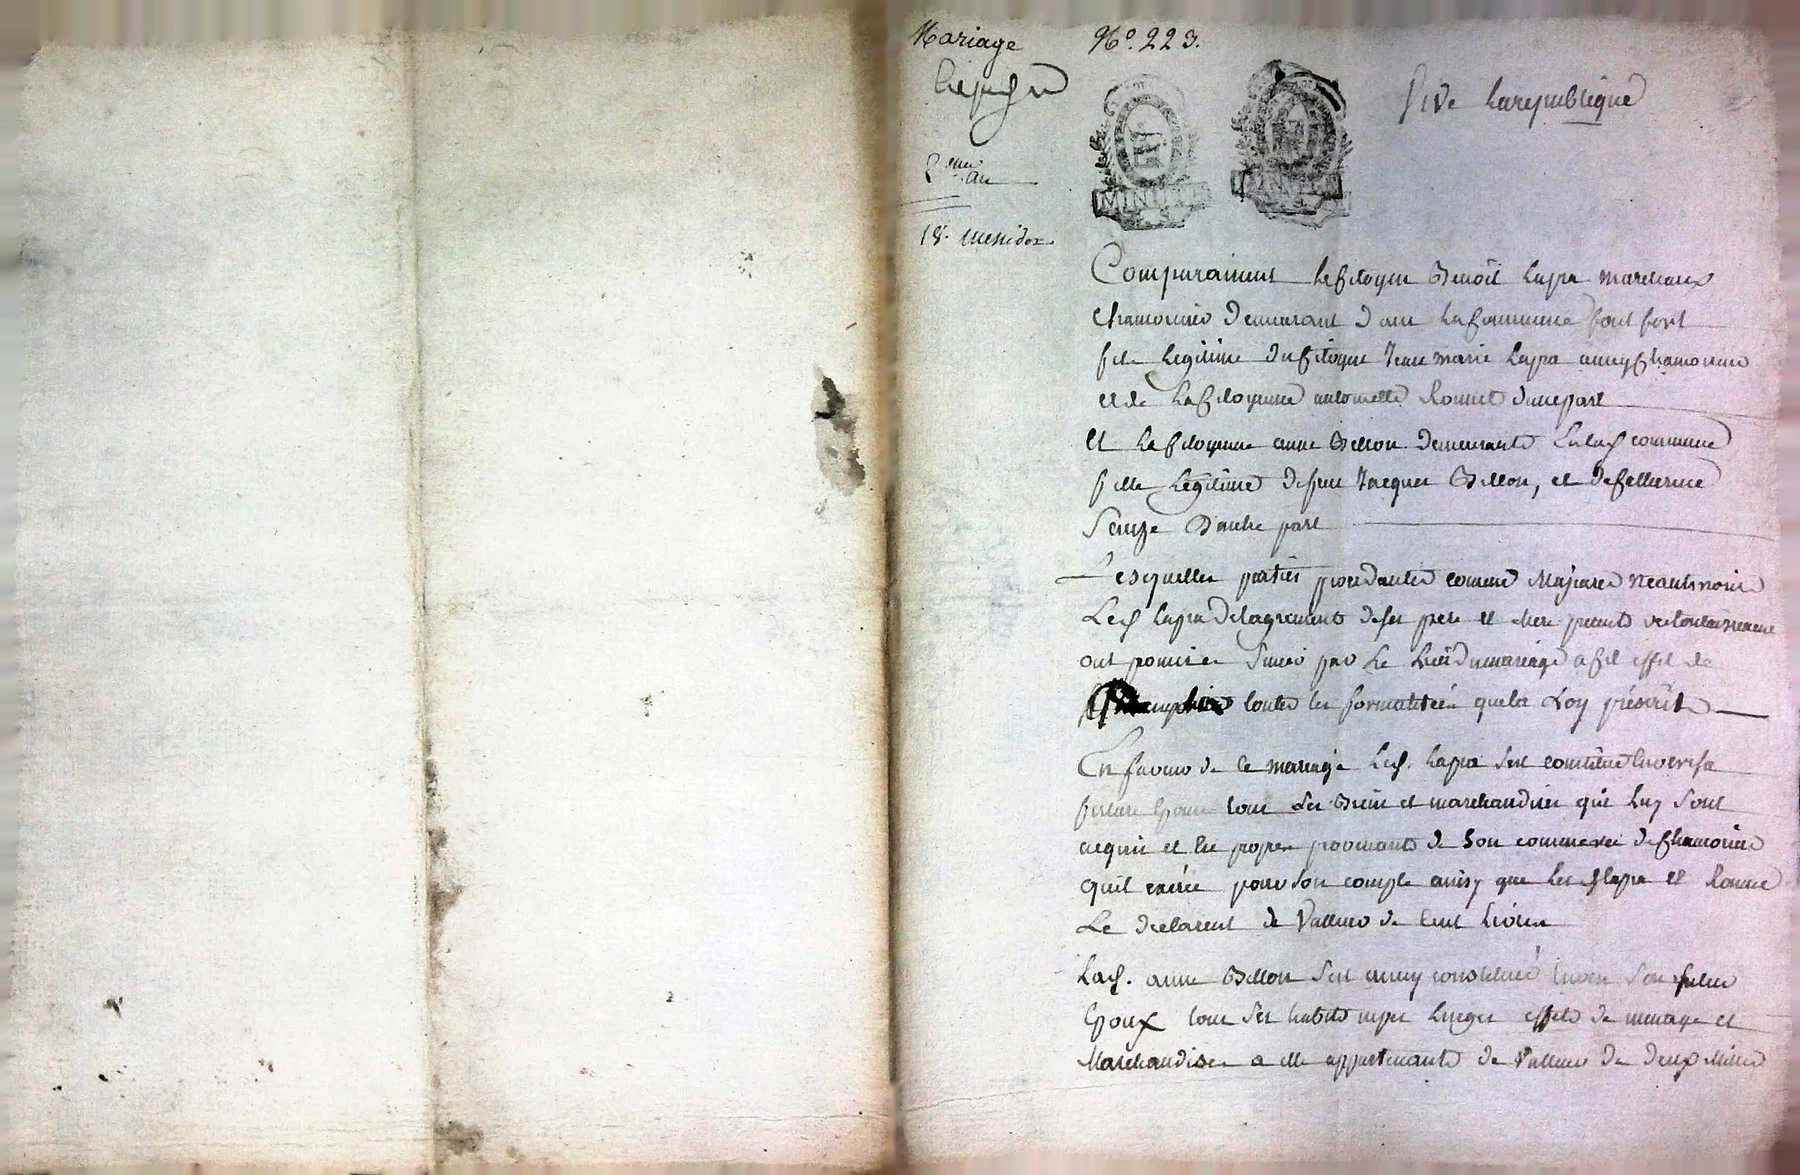 Mariage
N.º 223.
Vive La republique
2.eme an
18. Messidor
MINUTE
Comparaissent le Citoyen Benoit Lapra marchand
chamoiseur demeurant dans la Commune
fils Legitime du Citoyen Jean marie Lapra aussy Chamoiseur
et de la Citoyenne antoinette d'une part
Et la Citoyenne anne Billon demeurante commune
fille Legitime de feu Jacques Billon, et de
D'autre part
Lesquelles parties procedantes comme Majeures neantmoins
Le C. Lapra de l'agrement de ses pere et mere
ont promis de s'unir par le Lien du mariage a Cet effet de
toutes les formalitées que la Loy préscrit
En faveur de ce mariage Le C. Lapra s'est constitué Envers sa
future Epouse tous ses Biens et marchandises qui Luy sont
acquis et les propres provenants de son commerce de Chamoiseur
qu'il exerce pour son compte ainsy que les C. Lapra et
Le déclarent de Valleur de Cent Livres
La C. anne Billon s'est aussy constituée Envers son futur
Epoux tous ses habits nipes Linges effets de menage et
Marchandises a elle appartenants de Valleur de deux Milles